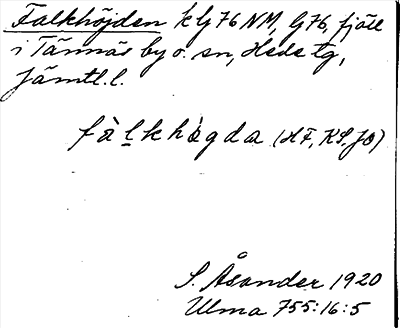 Falkhöjden k G 76 NM, G76, fjäll
i Tännäs by o. sn, Hede tg,
Jämtl. l.
fàlkhȯgda (HF, KS, JO)
S. Åsander 1920
Ulma 755:16:5